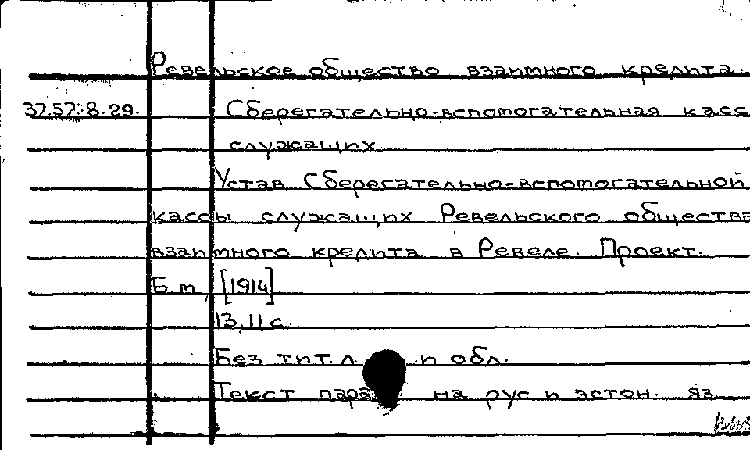 Ревельское общество взаимного кредита.
37.57:8.29. Сберегательно-вспомогательная касс
служащих
Устав Сберегательно-вспомогательной
кассы служащих Ревельского общества
взаимного кредита в Ревеле. Проект.
Б.m, [1914]
13,11 с.
Без тит.л. и обл.
Текст пара на рус и эстон. яз